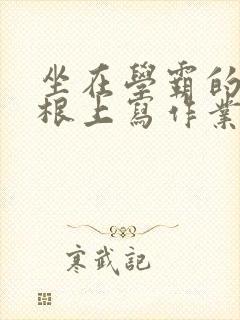 坐在學霸的
根上寫作業
寒武記